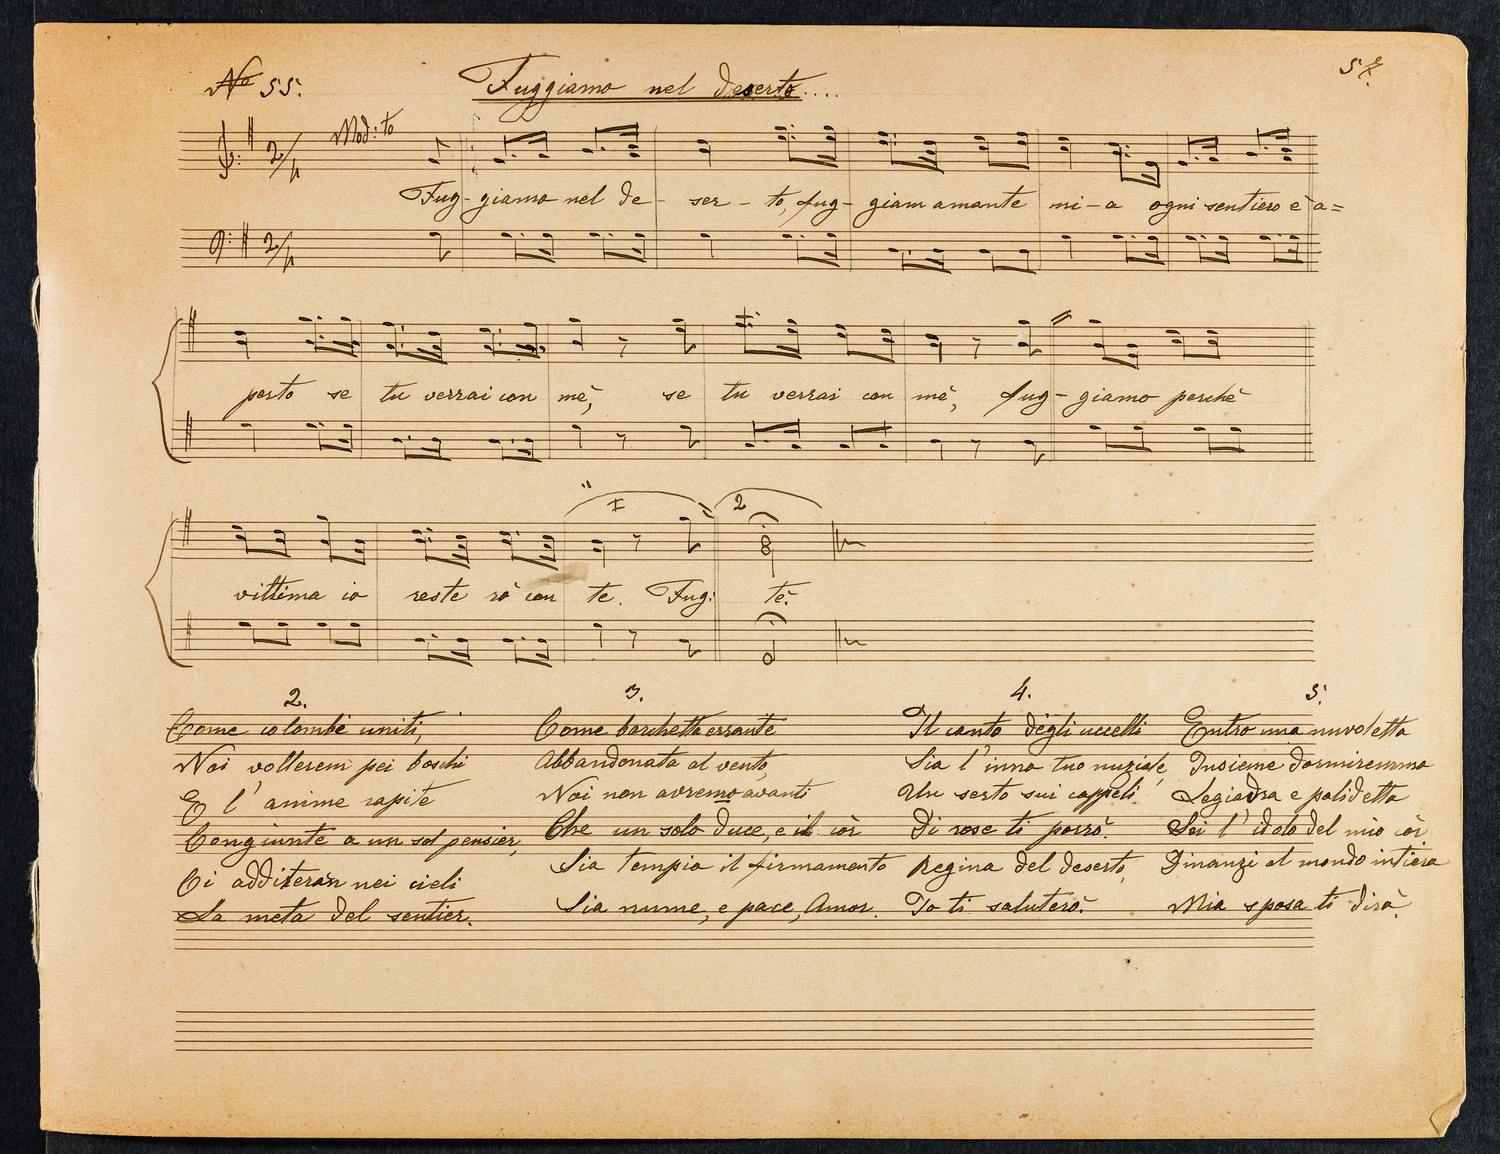 No 55.
Fuggiamo nel deserto....
Mod:to
2/4
Fug- giamo nel de- ser- to, fug- giam amante mi-a ogni sentiero è a=
2/4
perto se tu verrai con mè, se tu verrai con mè, fug- giamo perchè
I 2
vittima io reste rò con te. Fug: tè.
2.
Come colombe uniti,
Noi vollerem pei boschi
E l' anime rapite
Congiunte a un sol pensier,
Ci additeran nei cieli
La meta del sentier.
3.
Come barchetta errante
Abbandonata al vento,
Noi non avremo avanti
Che un solo duce, e il còr
Sia tempio il firmamento
Sia nume, e pace, Amor.
4.
Il canto degli uccelli
Sia l' inno tuo nuziale,
Un serto sui cappeli
Di rose ti porrò.
Regina del deserto,
Io ti saluterò.
5.
Entro una nuvoletta
Insieme dormiremmo
Legiadra e palidetta
Sei l' idolo del mio còr
Dinanzi al mondo intiero
Mia sposa ti dirò.